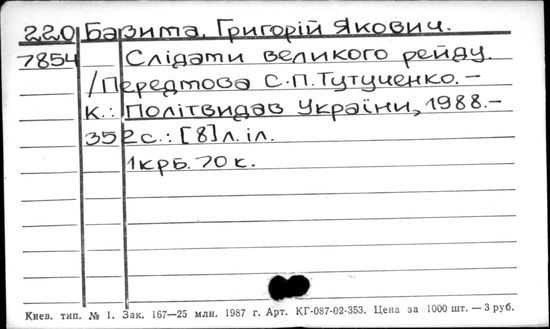 220 Базима, Григорій Якович.
7854 Слідами великого рейду.
/Передмова С.П.Тутученко.–
К.: Політвидав України, 1988.–
352с.: [8]л.іл.
1крб. 70к.
Киев. тип. № 1. Зак. 167—25 млн. 1987 г. Арт. КГ-087-02-353. Цена за 1000 шт. — 3 руб.